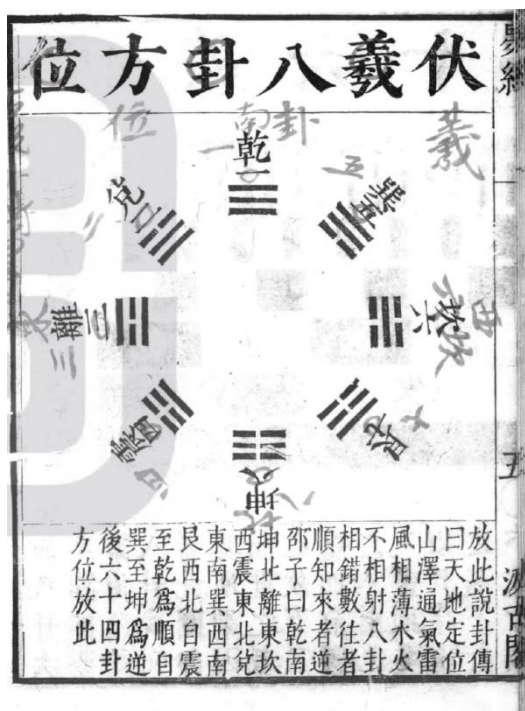 易經
五
汲古閣
伏羲八卦方位
羲
卦
南
位
乾一
兌二
離三
震四
巽五
坎六
艮七
坤八
五
西
坎
東
三
二
放此說卦傳
曰天地定位
山澤通氣雷
風相薄水火
不相射八卦
相錯數往者
順知來者逆
邵子曰乾南
坤北離東坎
西震東北兌
東南巽西南
艮西北自震
至乾爲順自
巽至坤爲逆
後六十四卦
方位放此